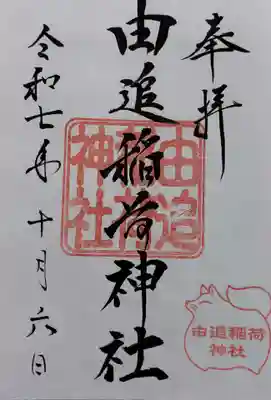 奉拝
由追稲荷神社
由追稲荷神社
令和七年十月六日
由追稲荷
神社